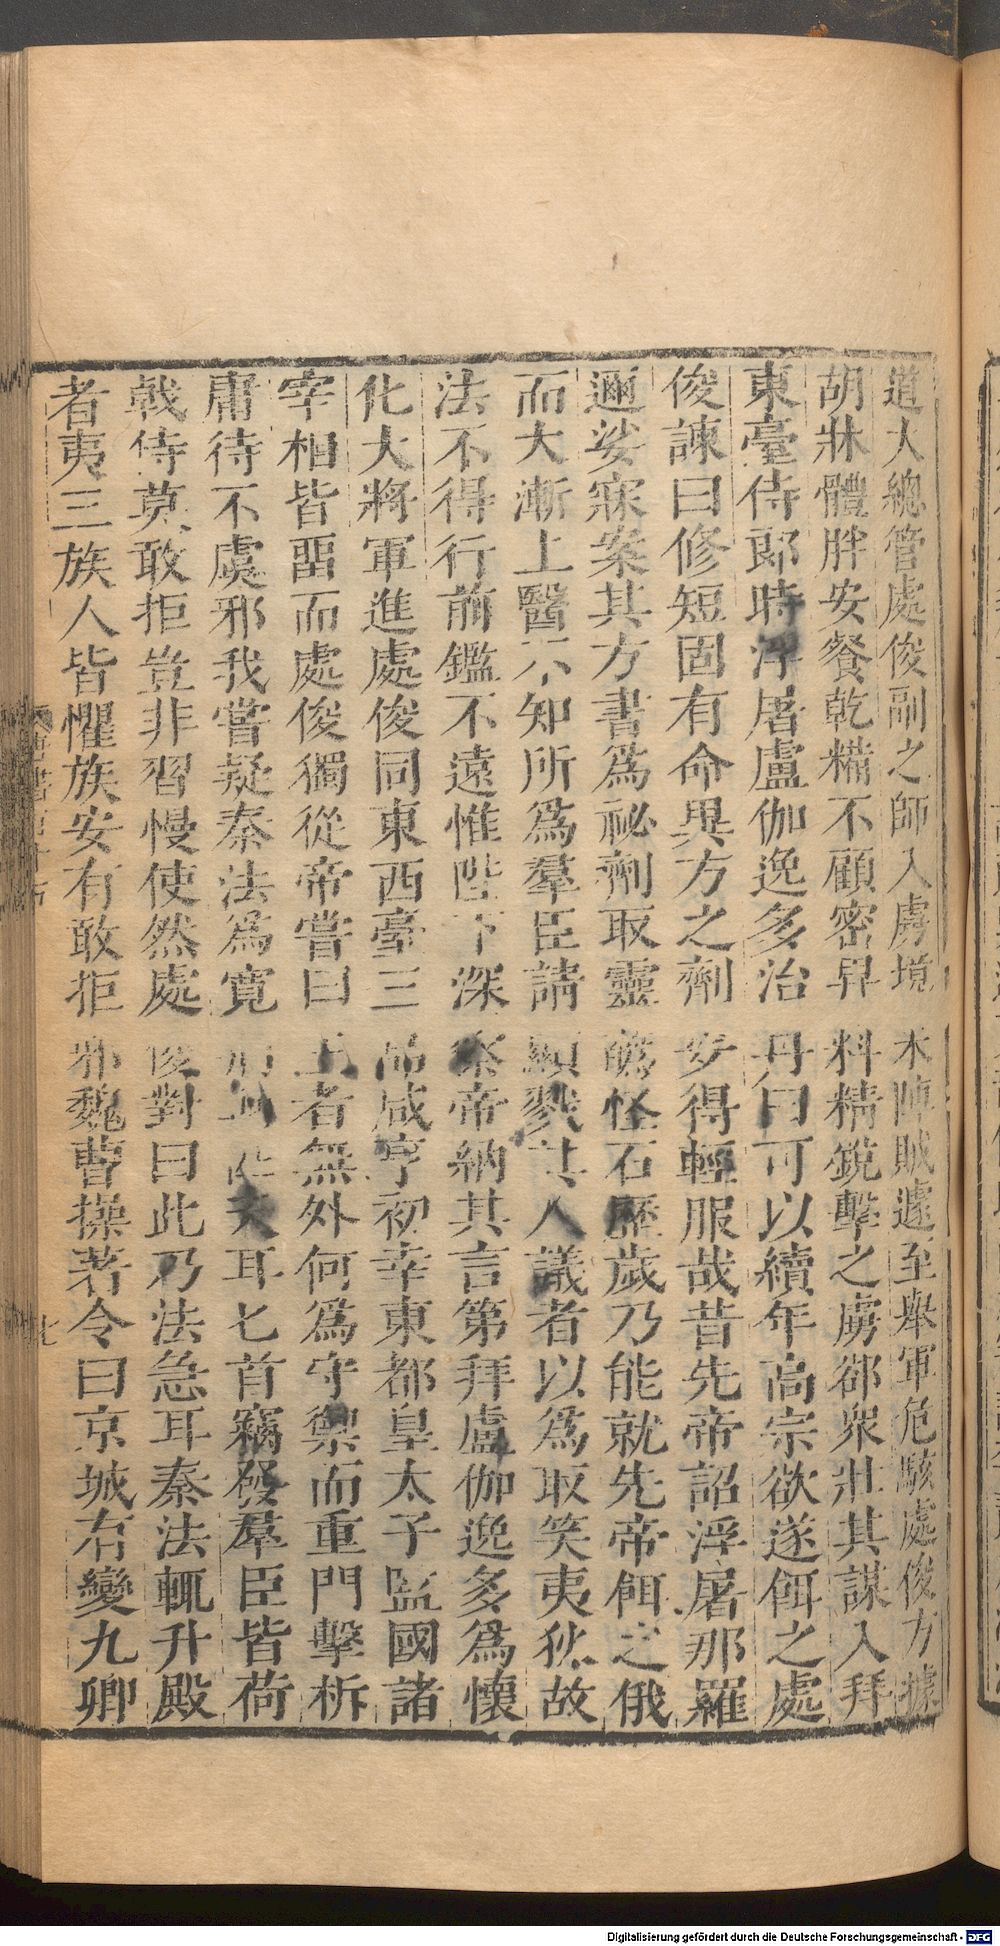 道大總管處俊副之師入虜境未陣賊遽至舉軍危駭處俊方據
胡牀體胖安餐乾糒不顧密畀料精銳擊之虜郤衆壯其謀入拜
東臺侍郞時浮屠盧伽逸多治丹曰可以續年高宗欲遂餌之處
俊諫曰修短固有命異方之劑安得輕服哉昔先帝詔浮屠那羅
邇娑寐案其方書爲祕劑取靈蘤怪石歷歲乃能就先帝餌之俄
而大漸上醫不知所爲羣臣請顯戮其人議者以爲取笑夷狄故
法不得行前鑑不遠惟陛下深察帝納其言第拜盧伽逸多爲懷
化大將軍進處俊同東西臺三品咸亨初幸東都皇太子監國諸
宰相皆畱而處俊獨從帝嘗曰王者無外何爲守禦而重門擊柝
庸待不虞邪我嘗疑秦法爲寬荊軻匹夫耳匕首竊發羣臣皆荷
戟侍莫敢拒豈非習慢使然處俊對曰此乃法急耳秦法輒升殿
者夷三族人皆懼族安有敢拒邪魏曹操著令曰京城有變九卿
七
Digitalisierung gefördert durch die Deutsche Forschungsgemeinschaft - DFG